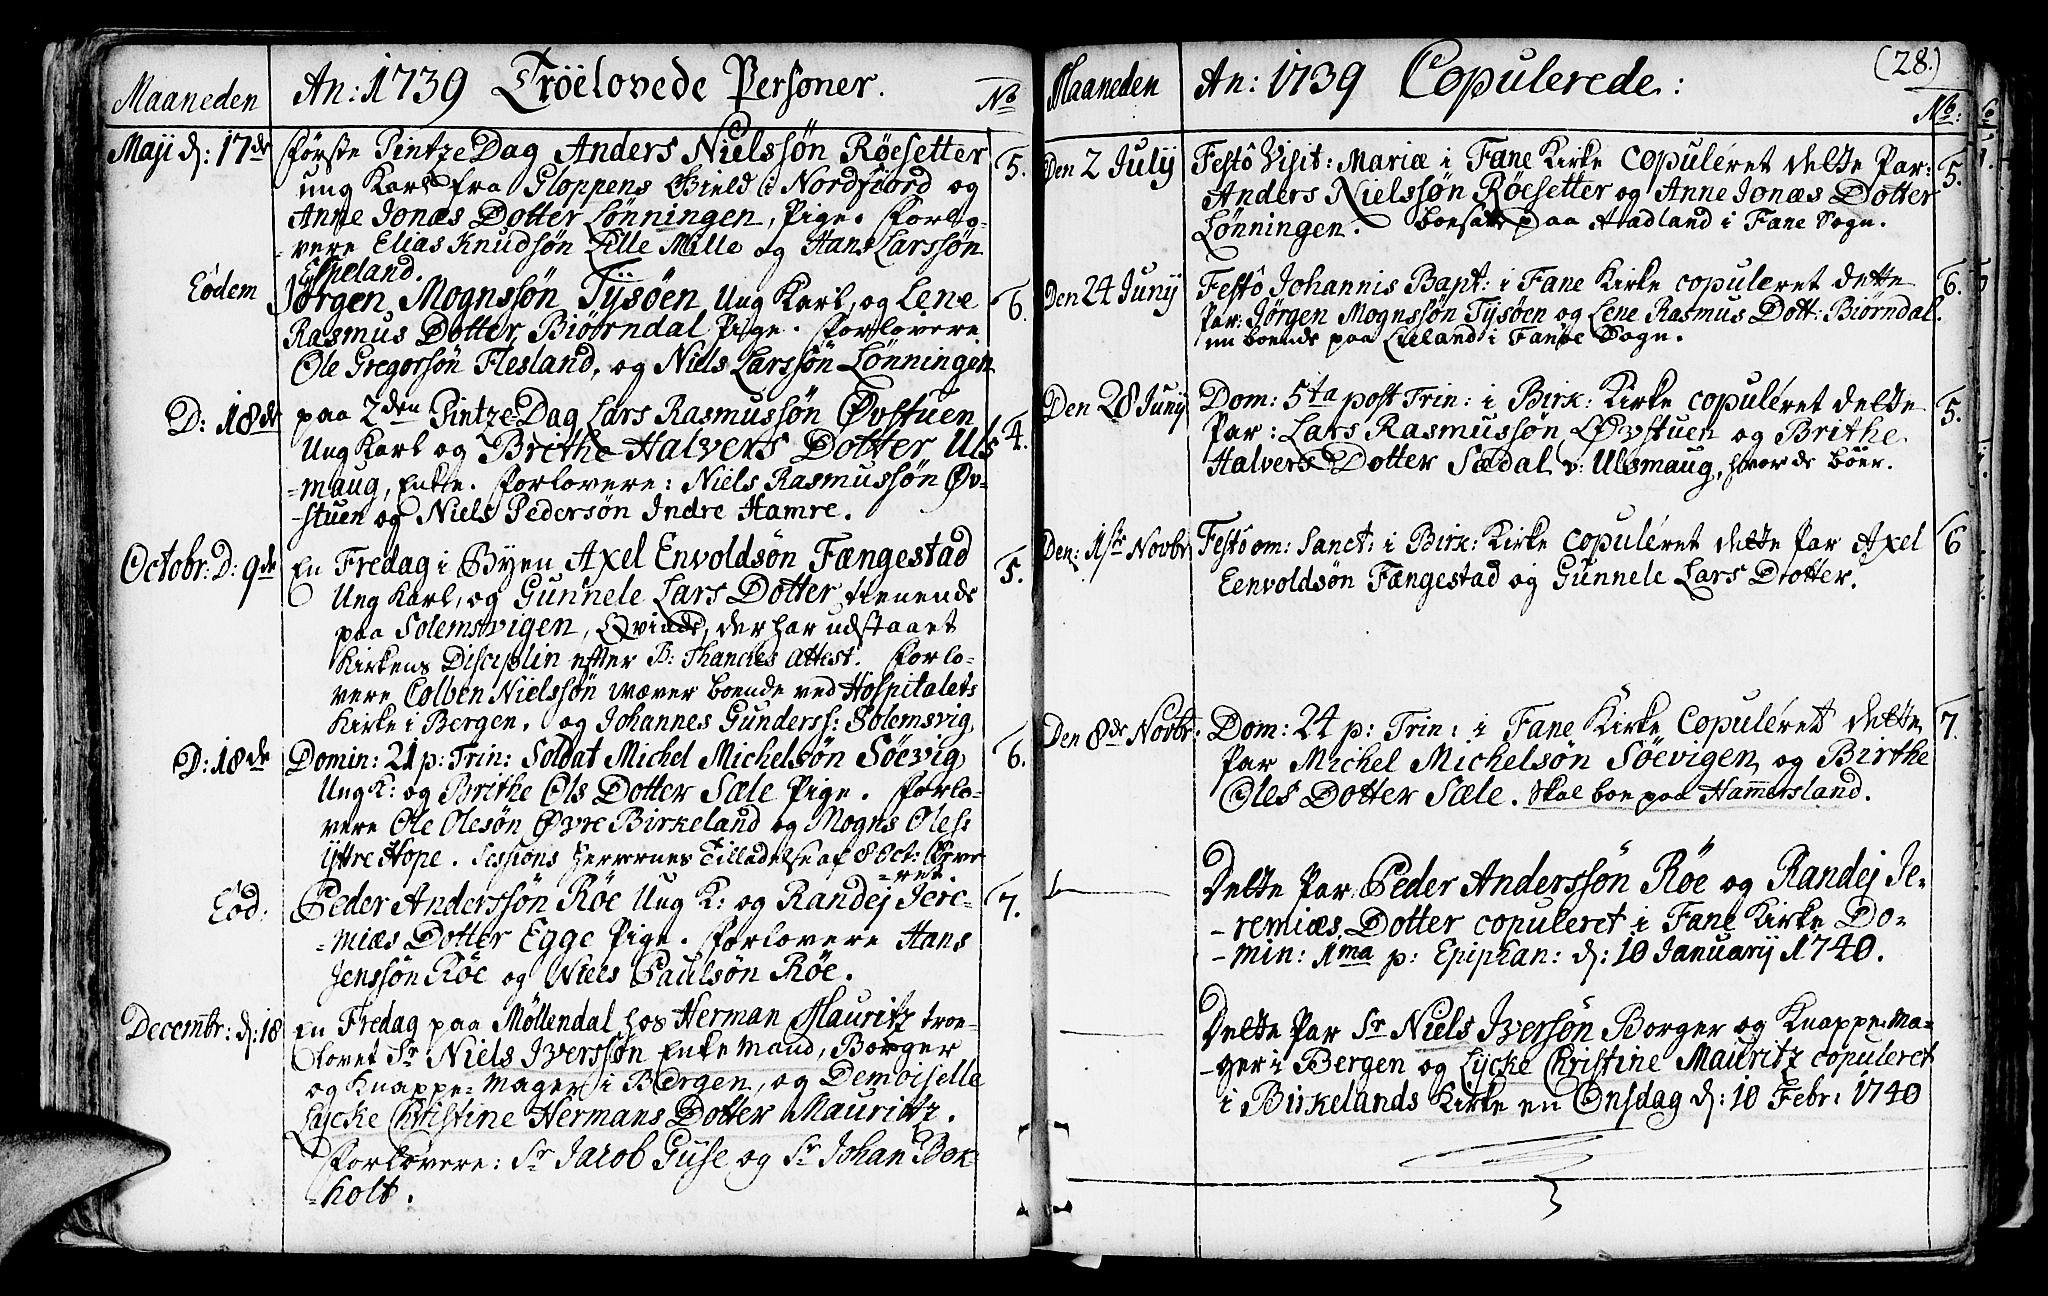 Maaneden
An: 1739 Tröelovede Personer.
No
Maji d: 17de
Första Pintze Dag Anders Nielssön Röesetter
5.
ung Karl fra Gloppens Gield i Nordfiord og
Anne Jonæs Dotter Lönningen, Pige. Forlo-
-vere Elias Knudsön Lille Mille og Hans Larssön
Espeland.
Eodem
Jörgen Mognssön Tÿsöen Ung Karl, og Lene
6.
Rasmus Dotter Biöörndal Pige. Forlovere
Ole Gregorsön Flesland, og Niels Larssön Lönningen
D: 18de
paa 2den Pintze Dag Lars Rasmussön Øvstuen
4.
Ung Karl og Brithe Halvers Dotter Uls
-maug, Enke. Forlovere: Niels Rasmussön Øv-
-stuen og Niels Pedersön Indre Hamre.
Octobr: D: 9de
En Fredag i Byen Axel Envoldsön Fængestad
5.
Ung Karl, og Gunnele Lars Dotter tienende
paa Solemsvigen, Qvinde, der har udstaaet
Kirkens Disciplin efter B: Thancks Attest. Forlo-
vere Colben Nielssön Wæver boende ved Hospitalets
Kirke i Bergen, og Johannes Gunderss: Solemsvig
D: 18de
Domin: 21 p: Trin: Soldat Michel Michelsön Söevig
6.
Ung K: og Brithe Ols Dotter Sæle Pige. Forlo-
vere Ole Olesön Øvre Birkeland og Mogns Oless:
Ÿttre Hope. Sessions Herrernes Tilladelse af 8 Oct: leve
-ret.
Eod:
Peder Anderssön Röe Ung K: og Randej Jere-
7.
-miæs Dotter Egge Pige. Forlovere Hans
Jenssön Röe og Niels Paulsön Röe.
Decembr: d: 18
En Fredag paa Möllendal hos Herman Mauritz troe-
lovet Sr Niels Iverssön Enke Mand, Borger
og Knappe-Mager i Bergen, og Demoiselle
Lycke Christine Hermans Dotter Mauritz.
Forlovere: Sr Jacob Guse og Sr Johan Bok-
-holt.
(28.)
Maaneden
An: 1739 Copulerede:
No:
Den 2 Julij
Festô Visit: Mariæ i Fane Kirke copuleret dette Par:
5.
Anders Nielssön Röesetter og Anne Jonæs Dotter
Lönningen. boesatt paa Aadland i Fane Sogn.
Den 24 Junij
Festô Johannis Bapt: i Fane Kirke copuleret dette
6.
Par: Jörgen Mognssön Tysöen og Lene Rasmus Dott: Biörndal.
nu boende paa Lieland i Fanöe Sogn.
Den 28 Junij
Dom: 5ta post Trin: i Birk: Kirke copuleret dette
5.
Par: Lars Rasmussön Øvstuen og Brithe
Halvers Dotter Sædal v: Ulsmaug, hvor de böer.
Den: 1ste Novbr
Festo om: Sanct: i Birk: Kirke copuleret dette Par Axel
6
Eenvoldsön Fængestad og Gunnele Lars Dotter.
Den 8de Novbr:
Dom: 24 p: Trin: i Fane Kirke Copuleret dette
7.
Par Michel Michelsön Söevigen og Birthe
Oles Dotter Sæle. Skal boe paa Hammersland.
Dette Par Peder Anderssön Röe og Randej Je-
-remiæs Dotter copuleret i Fane Kirke Do-
-min: 1ma p: Epiphan: d: 10 Januarij 1740.
Dette Par Sr Niels Iversön Borger og Knappe-Ma-
-ger i Bergen og Lycke Christine Mauritz copuleret
i Birkelands Kirke en Onsdag d: 10 Febr: 1740